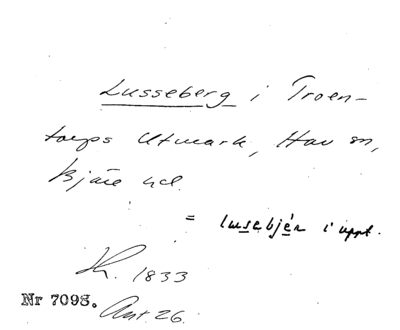 Lusseberg i Troen-
torps Utmark, Hov sn,
Bjäre hd.
= lusebjér i uppt.
Kt. 1833
Nr 7098. Ant. 26.